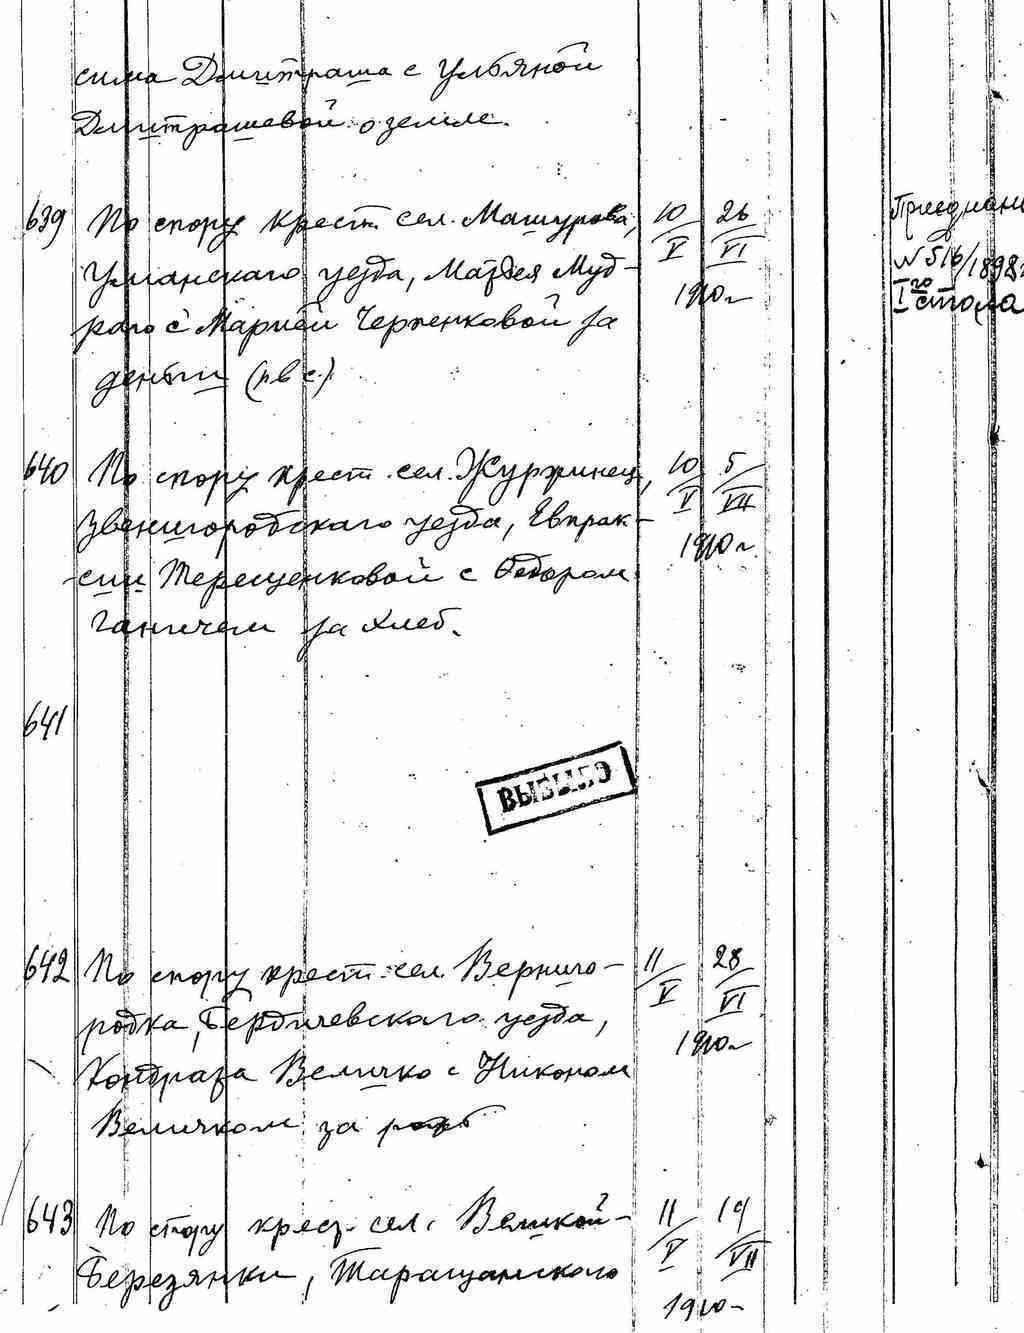 сима Дмитраша с Ульяной
Дмитрашевой о земле.
639 По спору крест. сел. Машурова, 10/V 26/VI 1910 г
Уманскаго уезда, Матвея Муд-
раго с Марией Черненковой за
деньги (п в с.)
Приединен
N 516/1898 г
I го стола
640 По спору крест. сел. Журжинец, 10/V 5/VII 1910 г.
Звенигородскаго уезда, Евпрак-
сии Терещенковой с Федором
Ганичем за хлеб.
641
ВЫБЫЛО
642 По спору крест. сел. Верниго- 11/V 28/VI 1910 г
родка, Бердичевскаго уезда,
Кондрата Величко с Никоном
Величком за
643 По спору крест. сел. Великой- 11/V 19/VII 1910
Березянки, Таращанского